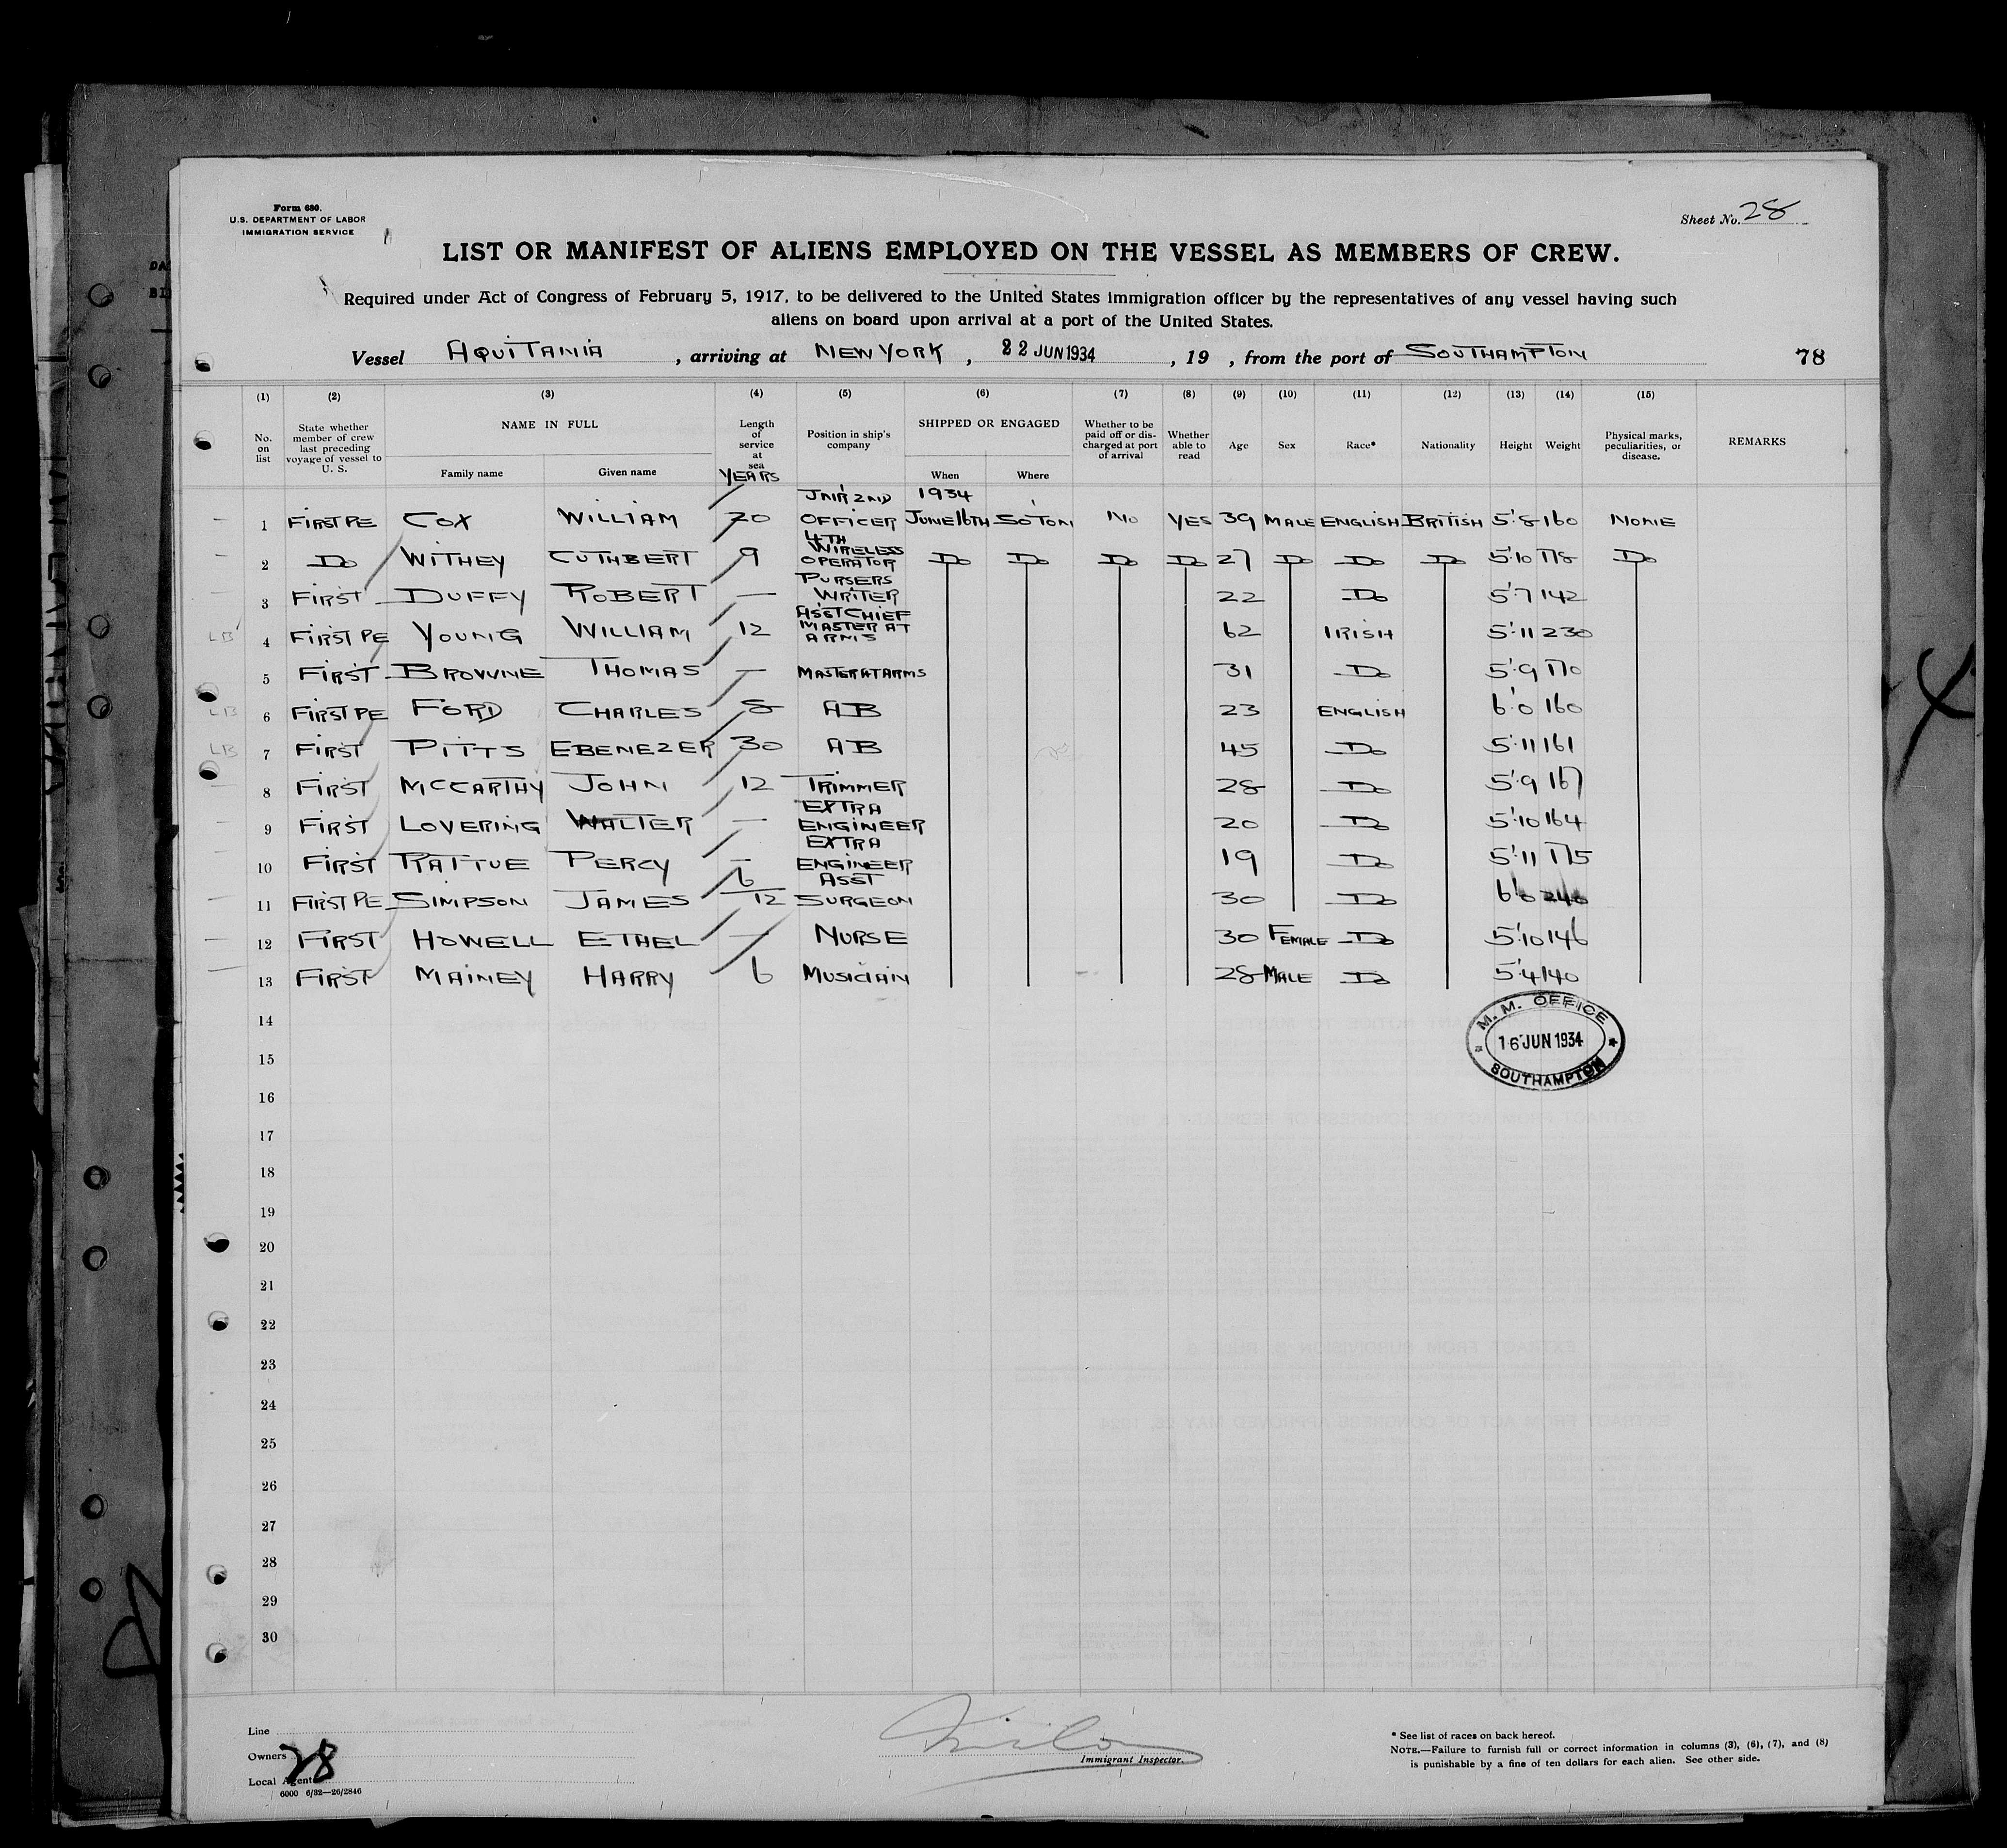 Form 680.
U.S. DEPARTMENT OF LABOR
IMMIGRATION SERVICE
Sheet No. 28
LIST OR MANIFEST OF ALIENS EMPLOYED ON THE VESSEL AS MEMBERS OF CREW.
Required under Act of Congress of February 5, 1917, to be delivered to the United States immigration officer by the representatives of any vessel having such
aliens on board upon arrival at a port of the United States.
Vessel AQUITANIA, arriving at NEW YORK, 22 JUN 1934, 19 , from the port of SOUTHAMPTON 78
(1) (2) (3) (4) (5) (6) (7) (8) (9) (10) (11) (12) (13) (14) (15)
No. on list
State whether member of crew last preceding voyage of vessel to U. S.
NAME IN FULL
Family name Given name
Length of service at sea
YEARS
Position in ship's company
SHIPPED OR ENGAGED
When Where
Whether to be paid off or discharged at port of arrival
Whether able to read
Age Sex Race* Nationality Height Weight
Physical marks, peculiarities, or disease.
REMARKS
1 FIRST PE COX WILLIAM 20 JNR 2ND OFFICER 1934 JUNE 16TH SO'TON NO YES 39 MALE ENGLISH BRITISH 5'8 160 NONE
2 DO WITHEY CUTHBERT 9 4TH WIRELESS OPERATOR DO DO DO DO 27 DO DO DO 5'10 178 DO
3 FIRST DUFFY ROBERT — PURSERS WRITER 22 DO 5'7 142
LB 4 FIRST PE YOUNG WILLIAM 12 ASST CHIEF MASTER AT ARMS 62 IRISH 5'11 230
5 FIRST BROWNE THOMAS — MASTER AT ARMS 31 DO 5'9 170
LB 6 FIRST PE FORD CHARLES 8 AB 23 ENGLISH 6'0 160
LB 7 FIRST PITTS EBENEZER 30 AB 45 DO 5'11 161
8 FIRST MCCARTHY JOHN 12 TRIMMER 28 DO 5'9 167
9 FIRST LOVERING WALTER — EXTRA ENGINEER 20 DO 5'10 164
10 FIRST RATTUE PERCY — EXTRA ENGINEER 19 DO 5'11 175
11 FIRST PE SIMPSON JAMES 6/12 ASST SURGEON 30 DO 6'0 240
12 FIRST HOWELL ETHEL — NURSE 30 FEMALE DO 5'10 146
13 FIRST MAINEY HARRY 6 MUSICIAN 28 MALE DO 5'4 140
14
M. M. OFFICE
16 JUN 1934
SOUTHAMPTON
15
16
17
18
19
20
21
22
23
24
25
26
27
28
29
30
Line
Owners
Local Agents
28
6000 6/32—26/2846
Immigrant Inspector.
* See list of races on back hereof.
NOTE.—Failure to furnish full or correct information in columns (3), (6), (7), and (8)
is punishable by a fine of ten dollars for each alien. See other side.